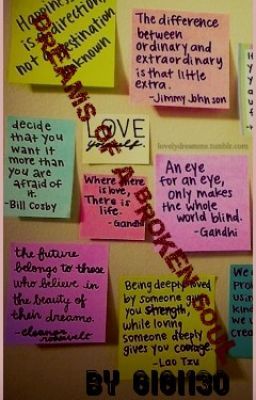 Happiness
is a direction,
not a destination
known
The difference
between
ordinary and
extraordinary
is that little
extra.
-Jimmy Johnson
lovelydreamms.tumblr.com
decide
that you
want it
more than
you are
afraid of
it.
-Bill Cosby
LOVE
yourself.
Where there
is love,
There is
life.
-Gandhi
An eye
for an eye,
only makes
the whole
world blind.
-Gandhi
the future
belongs to those
who believe in
the beauty of
their dreams.
-eleanor roosevelt
Being deeply loved
by someone gives
you strength,
while loving
someone deeply
gives you courage
-Lao Tzu
We
using
kind
we
DREAMS OF A BROKEN SOUL
BY GIGI1130